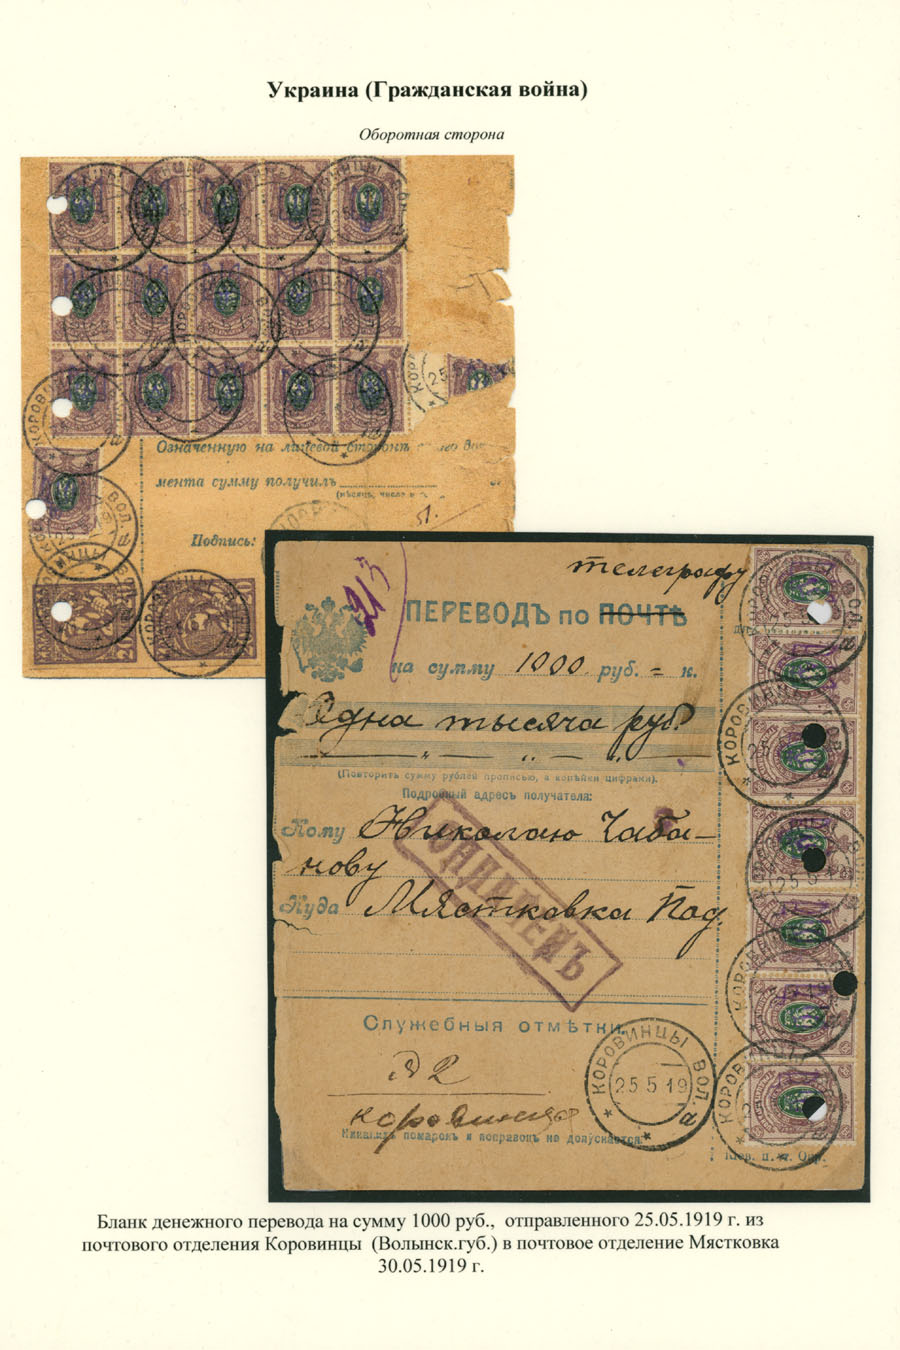 Украина (Гражданская война)
Оборотная сторона
Означенную на лицевой сторонѣ
мента сумму получилъ
(мѣсяцъ, число и г.
Подпись:
телеграфу
213
ПЕРЕВОДЪ по ПОЧТѢ
на сумму 1000 руб. = к.
Одна тысяча руб.
(Повторить сумму рублей прописью, а копѣйки цифрами).
Подробный адресъ получателя:
Кому Николаю Чаба-
нову
Куда Мястковка Под.
Служебныя отмѣтки.
№ 2
КОРОВИНЦЫ ВОЛ.
25 5 19
а
Коровинцы
Никакихъ помарокъ и поправокъ не допускается.
Кіев. п.-т. Окр.
Бланк денежного перевода на сумму 1000 руб., отправленного 25.05.1919 г. из
почтового отделения Коровинцы (Волынск.губ.) в почтовое отделение Мястковка
30.05.1919 г.